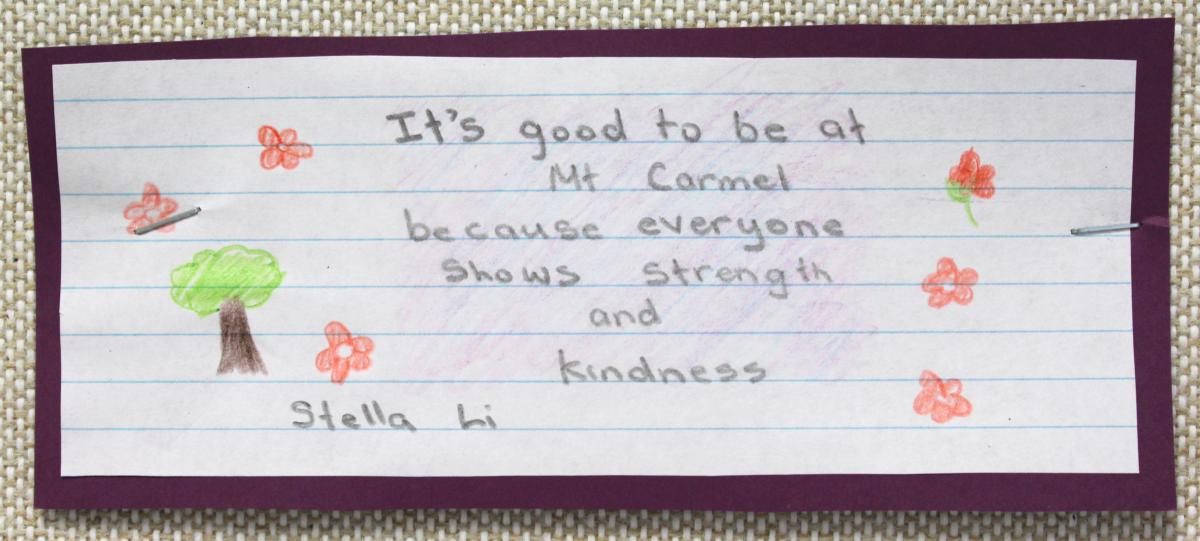 It's good to be at
Mt Carmel
because everyone
Shows Strength
and
kindness
Stella Li